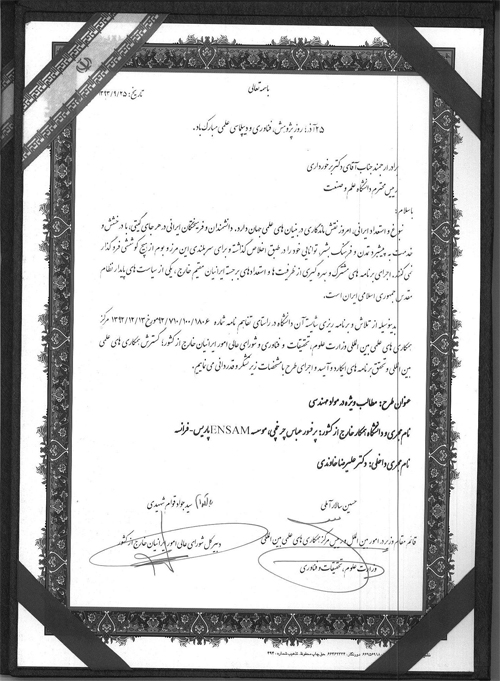 باسمه تعالی
تاریخ: ۱۳۹۳/۹/۲۵
۲۵ آذر؛ روز پژوهش، فناوری و دیپلماسی علمی مبارک باد.
برادر ارجمند جناب آقای دکتر برخورداری
رییس محترم دانشگاه علم و صنعت
با سلام؛
نبوغ و استعداد ایرانی، امروز نقش ماندگاری در بنیان های علمی جهان دارد. دانشمندان و فرهیختگان ایرانی در هر جای گیتی، با درخشش و
خدمت به پیشبرد تمدن و فرهنگ بشر، توانایی خود را در طبق اخلاص گذاشته و برای سربلندی این مرز و بوم از هیچ کوششی فروگذار
نمی کنند. اجرای برنامه های مشترک و بهره گیری از ظرفیت ها و استعدادهای برجسته ایرانیان مقیم خارج، یکی از سیاست های پایدار نظام
مقدس جمهوری اسلامی ایران است.
بدینوسیله از تلاش و برنامه ریزی شایسته آن دانشگاه در راستای تفاهم نامه شماره مرکز
همکاری های علمی بین المللی وزارت علوم، تحقیقات و فناوری و شورای عالی امور ایرانیان خارج از کشور؛ گسترش همکاری های علمی
بین المللی و تحقق برنامه های و اجرای طرح با مشخصات زیر تشکر و قدردانی می نماییم.
عنوان طرح: مطالب ویژه در مواد مهندسی
نام مجری و دانشگاه همکار خارج از کشور: پرفسور عباس چرخچی، موسسه ENSAM پاریس - فرانسه
نام مجری داخلی: دکتر علیرضا خاوندی
حسین سالار آملی
سید جواد قوام شهیدی
قائم مقام وزیر در امور بین الملل و رییس مرکز همکاری های علمی بین المللی
دبیر کل شورای عالی امور ایرانیان خارج از کشور
وزارت علوم، تحقیقات و فناوری